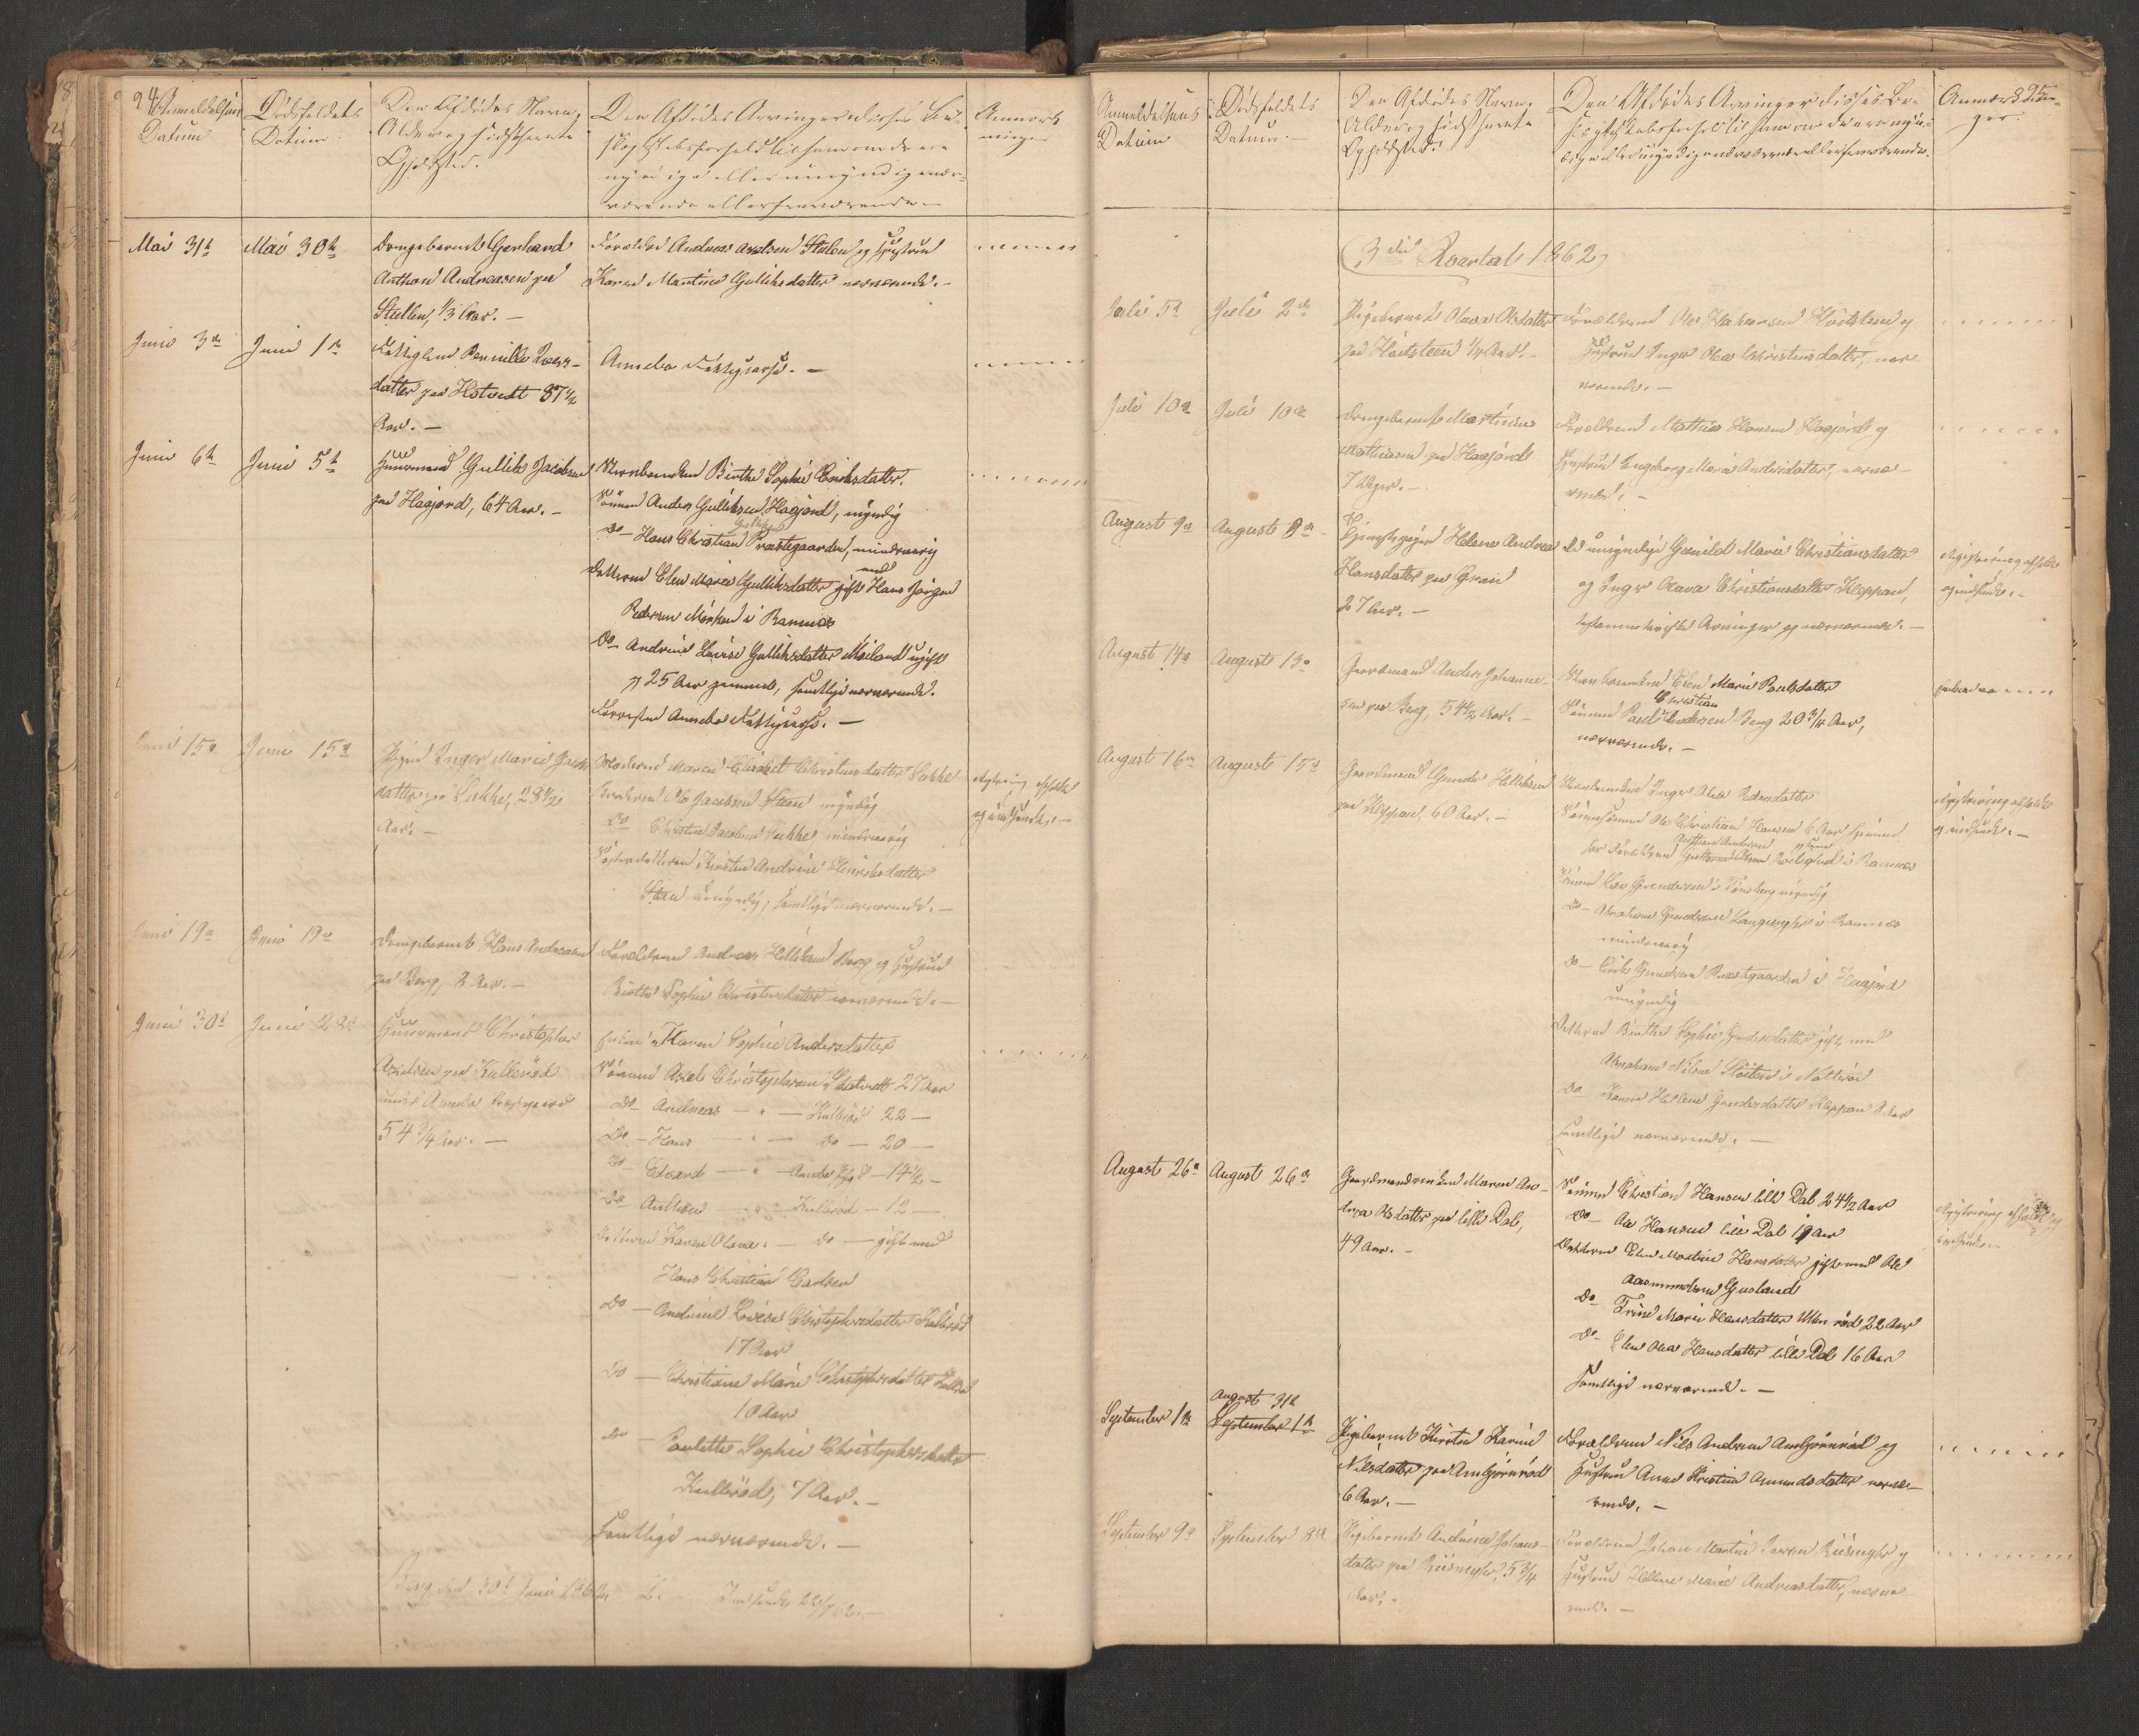 24
Anmeldelsens
Datum
Dødsfaldets
Datum
Den Afdødes Navn,
Alder og sidst havte
Opholdsted.
Den Afdødes Arvinger disses Be-
slegtskabsforhold til ham om de ere
myndige eller umyndige nær-
værende eller fraværende
Anmærk
ninger
Mai 31te
Mai 30te
Drengebarnet Gerhard
Anthon Andreasen paa
Stullen, 1/3 Aar. —
Forældre Andreas Axelsen Stulen og Hustru
Karen Martine Gulliksdatter nærværende. —
Juni 3de
Juni 1ste
Fattiglem Pernille Lars-
datter paa Hotvedt 87 1/2
Aar. —
Anmeldes Fattigvæsen. —
Juni 6te
Juni 5te
Huusmand Gullik Jacobsen
paa Haajord, 64 Aar. —
Ænkemanden Birthe Sophie Eriksdatter.
Sønnen Anders Gulliksen Haajord, myndig
Do — Hans Christian Gulliksen Præstegaarden, mindreaarig
Datteren Elen Marie Gulliksdatter gift med Hans Jørgen
Pedersen Mørken i Ramnæs
Do — Andrine Lovise Gulliksdatter Meiland ugift
og 25 Aar gammel, samtlige nærværende.
Forresten Anmeldes Fattigvæsen. —
Juni 15de
Juni 15de
Pigen Inger Marie Jacobs
datter paa Sukke, 28 1/2
Aar. —
Moderen Maren Elisabet Christensdatter Sukke
Broderen Ole Jacobsen Steen myndig
Do Christen Jacobsen Sukke mindreaarig
Søsterdatteren Kirsten Andrine Henriksdatter
Steen umyndig, samtlige nærværende. —
Registrering afholdt
og indsendt. —
Juni 19de
Juni 19de
Drengebarnet Hans Andreasen
paa Berg, 3 Aar. —
Forældrene Andreas Helliksen Berg og Hustrue
Birthe Sophie Christensdatter nærværende. —
Juni 30te
Juni 28de
Huusmand Christopher
Axelsen paa Kullerød
under
54 3/4 Aar. —
Enken Karen Sophie Andersdatter
Sønnen Axel Christophersen 27 Aar
Do — Andreas — " — Kullerød 22 —
Do — Hans — " — Do — 20 —
Do — Edvard — " — — 14 1/2 —
Do — Anthon — " — Kullerød — 12 —
Datteren Karen Olava. — Do — gift med
Hans Christian Carlsen
Do — Andrine Lovise Christophersdatter Kullerød
17 Aar
Do — Christiane Marie Christophersdatter Kullerød
10 Aar
Do — Paulette Sophie Christophersdatter
Kullerød, 7 Aar. —
Samtlige nærværende. —
Berg den 30te Juni 1862
Indsendt 22/7 62. —
25
Anmeldelsens
Datum
Dødsfaldets
Datum
Den Afdødes Navn,
Alder og sidst havte
Opholdsted.
Den Afdødes Arvinger disses Be-
slegtskabsforhold til ham om de ere myn-
dige eller umyndige nærværende eller fraværende.
Anmærknin-
ger
3die Qvartal 1862
Juli 5te
Juli 2den
Pigebarnet Olava Olsdatter
paa Høitsteen 1/4 Aar. —
Forældrene Ole Høitsteen og
Hustrue Inger Olea Christensdatter, nær
værende. —
Juli 10de
Juli 10de
Drengebarnet Martinius
Mathiasen paa Haajord
7 Uger. —
Forældrene Mathias Hansen Haajord og
Hustrue Ingeborg Marie Andersdatter, nærvæ-
rende. —
August 9de
August 8de
Tjenestepigen Helene Andrea
Hansdatter paa Gran
27 Aar. —
De umyndige Gunild Marie Christiansdatter
og Inger Olava Christiansdatter Kleppan,
testamentariske Arvinger og nærværende. —
Registrering afholdt
og indsendt. —
August 14de
August 13de
Gaardmand Anders Johanne-
sen paa Berg, 54 1/2 Aar. —
Ænkemanden Elen Marie Paulsdatter
Sønnen Paul Christian Andersen Berg 20 3/4 Aar,
nærværende. —
August 16de
August 15de
Gaardmand Gunder Helliksen
paa Kleppan, 60 Aar. —
Inger Olea Pedersdatter
Sønnesønnen Ole Christian Hansen 6 Aar
i Ramnæs
Sønnen Lars Gundersen i Tønsberg myndig
Do — Abraham Gundersen i Ramnæs
mindreaarig
Do — Erik Gundersen Præstegaarden i Haajord
umyndig
Datteren Birthe Sophie Gundersdatter gift med
Abraham Nilsen i Nøtterøe
Do — Karen Helene Gundersdatter Kleppan 8 Aar
Samtlige nærværende. —
Registrering afholdt
og indsendt. —
August 26de
August 26de
Gaardmandsenken Maren An-
drea Olsdatter paa lille Dal,
49 Aar. —
Sønnen Christian Hansen lille Dal 24 1/2 Aar
Do — Ole Hansen lille Dal 19 Aar
Datteren Elen Martine Hansdatter gift med Ole
Aasmundsen Gusland
Do — Trine Marie Hansdatter 22 Aar
Do — Elen Olea Hansdatter lille Dal 16 Aar
Samtlige nærværende. —
Registrering afholdt og
indsendt. —
September 1ste
August 31te
September 1ste
Pigebarnet Kirsten Karine
Nilsdatter paa Ambjørnrød
6 Aar. —
Forældrene Nils Andersen Ambjørnrød og
Hustrue Anne Kirstine Amundsdatter nærvæ-
rende. —
September 9de
September 8de
Pigebarnet Andrine Johans-
datter paa Riismyhr, 5 3/4
Aar. —
Forældrene Johan Martin Larsen Riismyhr og
Hustrue Helene Marie Andreasdatter, nærvæ
rende. —